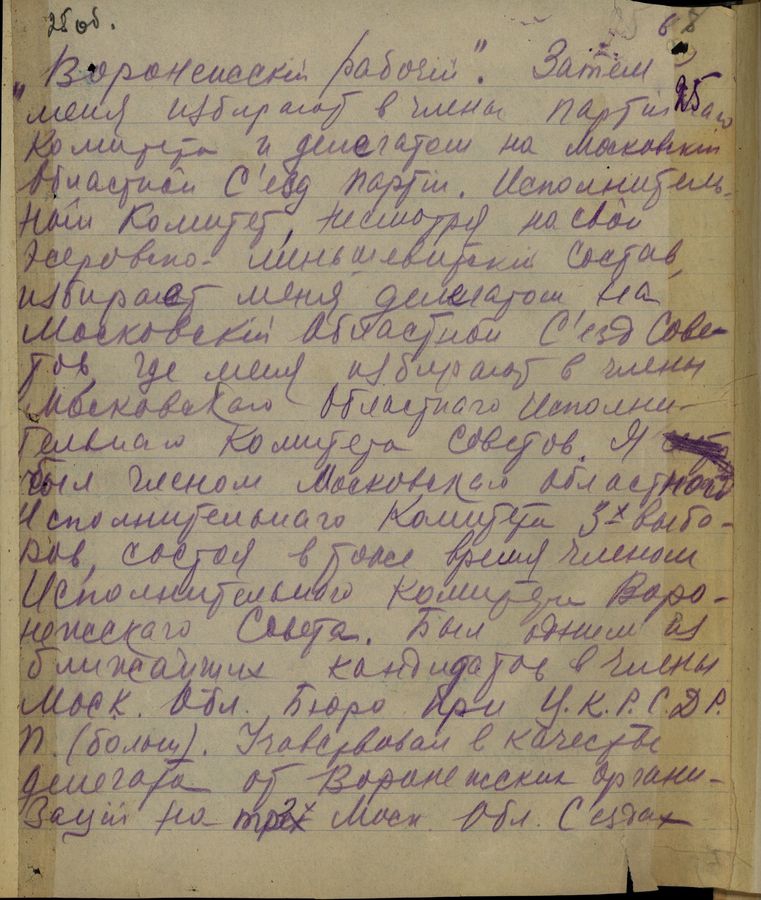 25 об.
6
25
"Воронежскій рабочій". Затем
меня избирают в члены партійнаго
Комитета и делегатом на Московскій
Областной С'езд партіи. Исполнитель-
ный Комитет, несмотря на свой
эсеровско-меньшевитскій состав,
избирает меня делегатом на
Московскій Областной С'езд Сове-
тов, где меня избирают в члены
Московскаго Областнаго Исполни-
тельнаго Комитета Советов. Я
был членом Московскаго областного
Исполнительнаго Комитета 3х выбо-
ров, состоя в тоже время членом
Исполнительнаго Комитета Воро-
нежскаго Совета. Был одним из
ближайших кандидатов в члены
Моск. Обл. Бюро при Ц.К.Р.С.Д.Р.
П. (больш). Учавствовал в качестве
делегата от Воронежских органи-
зацій на трех Моск. Обл. С'ездах